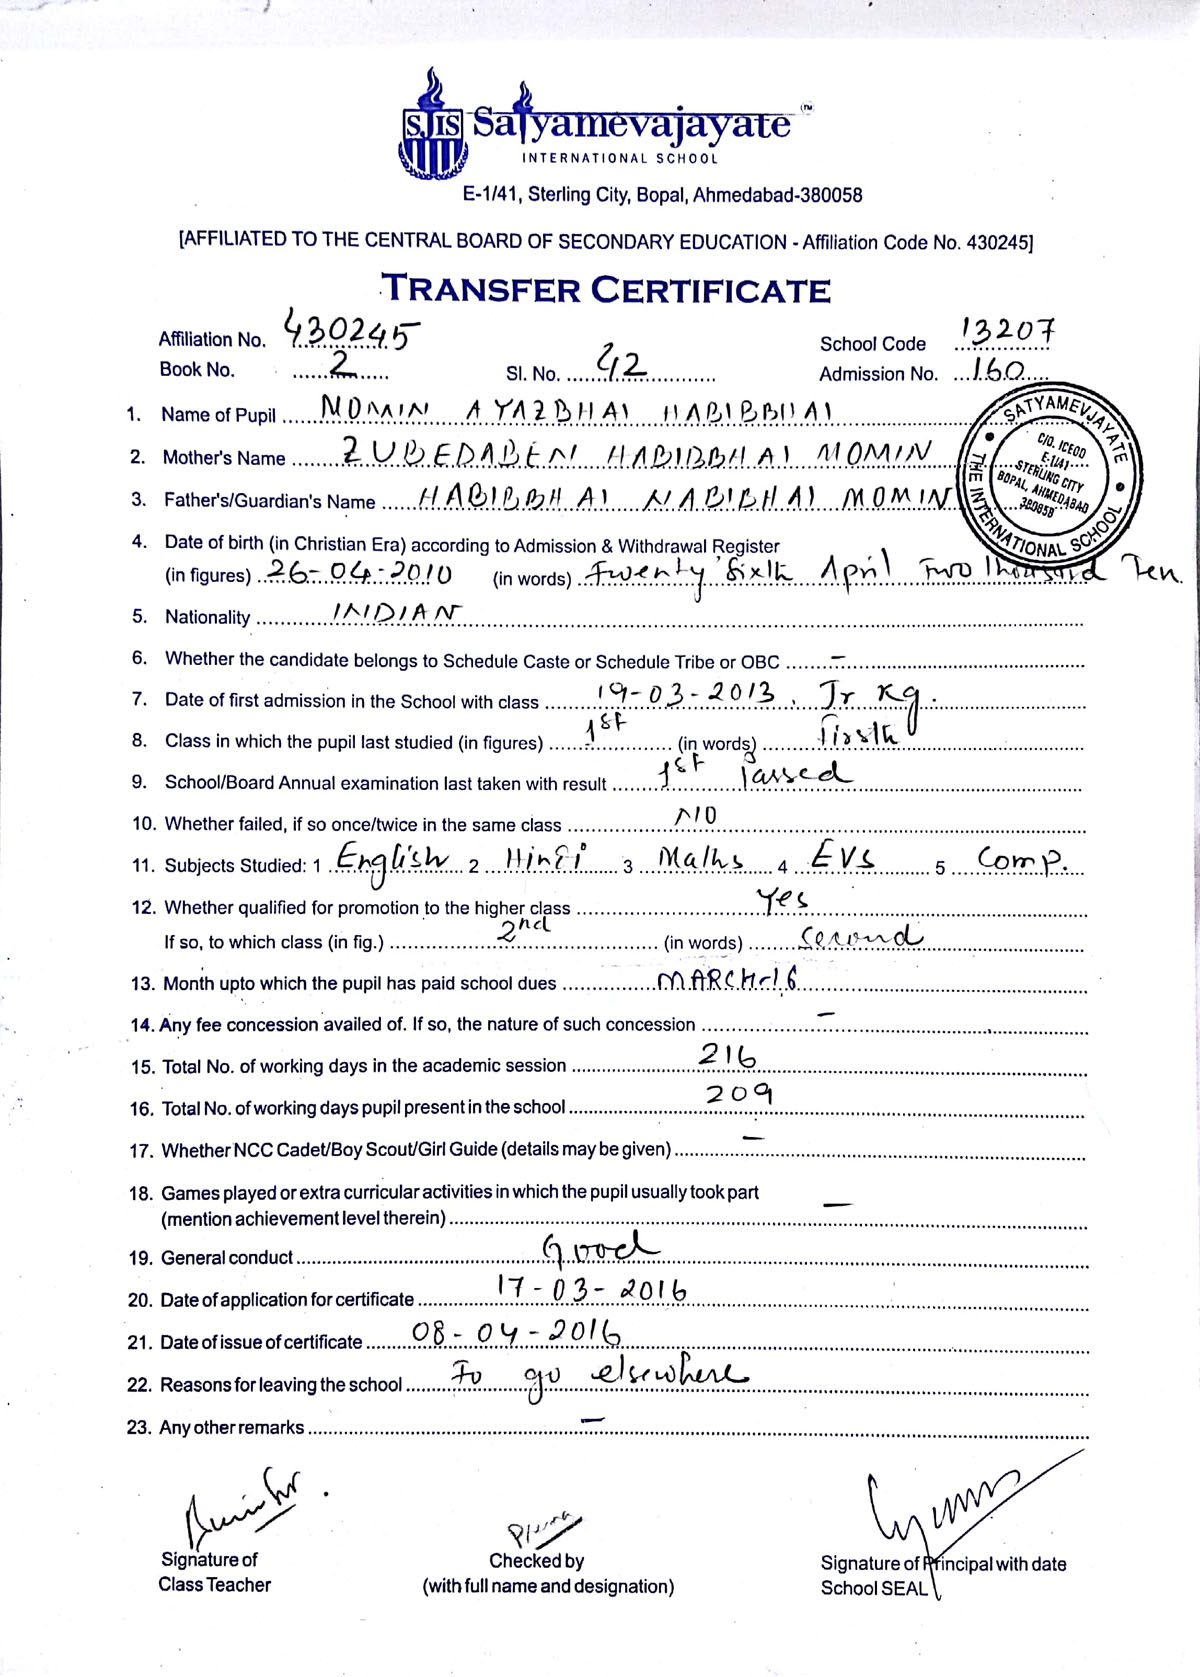 SJIS Satyamevajayate TM
INTERNATIONAL SCHOOL
E-1/41, Sterling City, Bopal, Ahmedabad-380058
[AFFILIATED TO THE CENTRAL BOARD OF SECONDARY EDUCATION - Affiliation Code No. 430245]
TRANSFER CERTIFICATE
Affiliation No. 430245 School Code 13207
Book No. 2 Sl. No. 42 Admission No. 160
1. Name of Pupil MOMIN AYAZBHAI HABIBBHAI
2. Mother's Name ZUBEDABEN HABIBBHAI MOMIN
3. Father's/Guardian's Name HABIBBHAI NABIBHAI MOMIN
SATYAMEVJAYATE
THE INTERNATIONAL SCHOOL
C/O. ICEOD
E-1/41
STERLING CITY
BOPAL, AHMEDABAD
380058
4. Date of birth (in Christian Era) according to Admission & Withdrawal Register
(in figures) 26-04-2010 (in words) Twenty Sixth April Two Thousand Ten.
5. Nationality INDIAN
6. Whether the candidate belongs to Schedule Caste or Schedule Tribe or OBC -
7. Date of first admission in the School with class 19-03-2013, Jr Kg.
8. Class in which the pupil last studied (in figures) 1st (in words) Firsth
9. School/Board Annual examination last taken with result 1st Passed
10. Whether failed, if so once/twice in the same class NO
11. Subjects Studied: 1 English 2 Hindi 3 Maths 4 EVS 5 Comp.
12. Whether qualified for promotion to the higher class Yes
If so, to which class (in fig.) 2nd (in words) Second
13. Month upto which the pupil has paid school dues MARCH-16
14. Any fee concession availed of. If so, the nature of such concession -
15. Total No. of working days in the academic session 216
16. Total No. of working days pupil present in the school 209
17. Whether NCC Cadet/Boy Scout/Girl Guide (details may be given) -
18. Games played or extra curricular activities in which the pupil usually took part
(mention achievement level therein) -
19. General conduct Good
20. Date of application for certificate 17-03-2016
21. Date of issue of certificate 08-04-2016
22. Reasons for leaving the school To go elsewhere
23. Any other remarks -
Signature of Checked by Signature of Principal with date
Class Teacher (with full name and designation) School SEAL